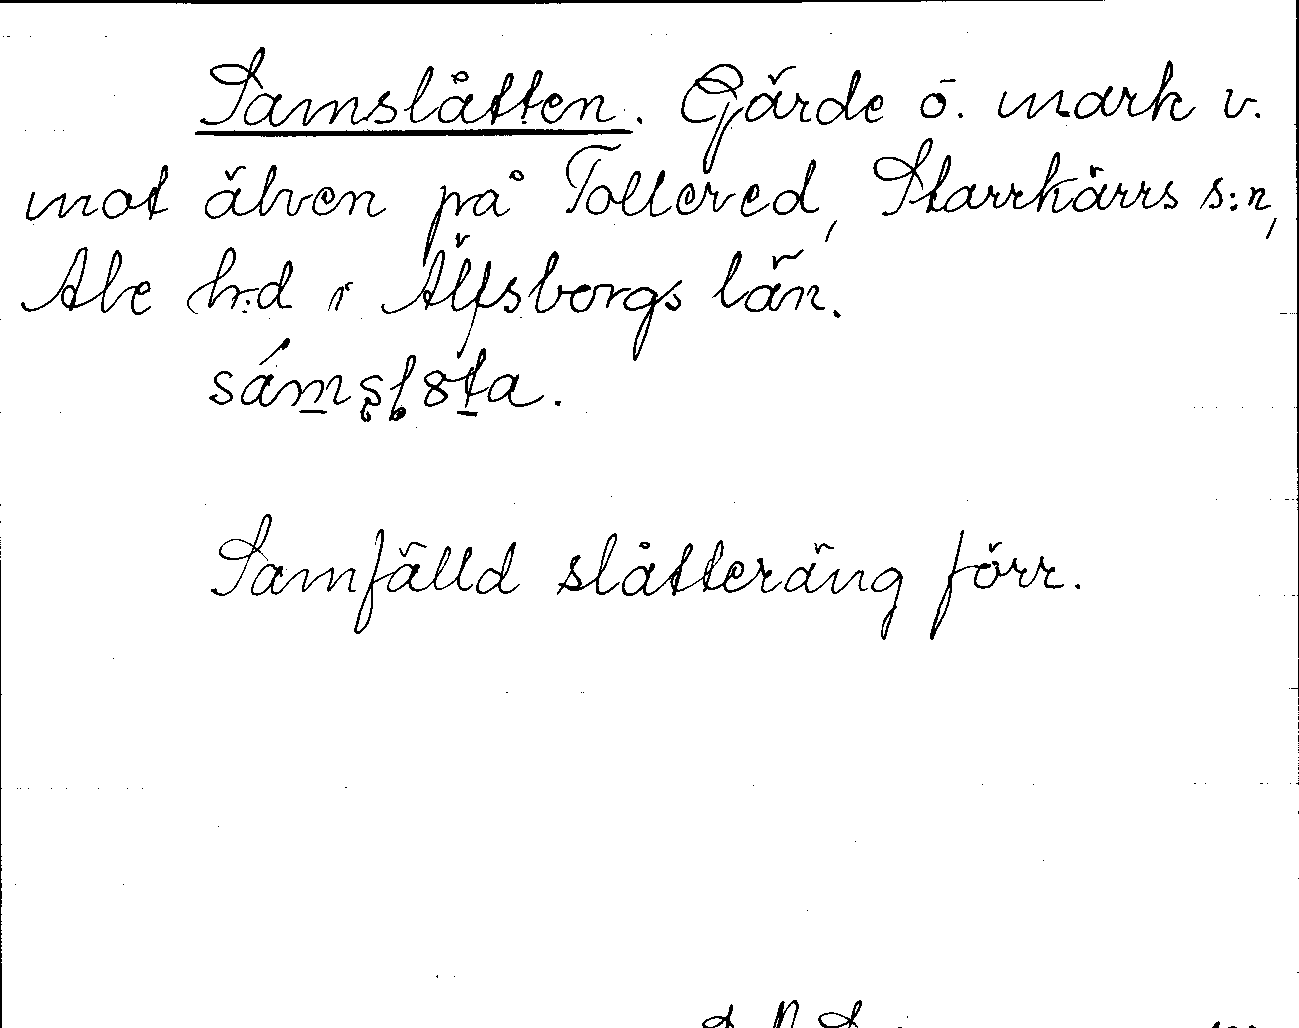 Samslåtten. Gärde o. mark v.
mot älven på Tollered, Starrkärrs s:n,
Ale h:d i Älfsborgs län.
Samfälld slåtteräng förr.